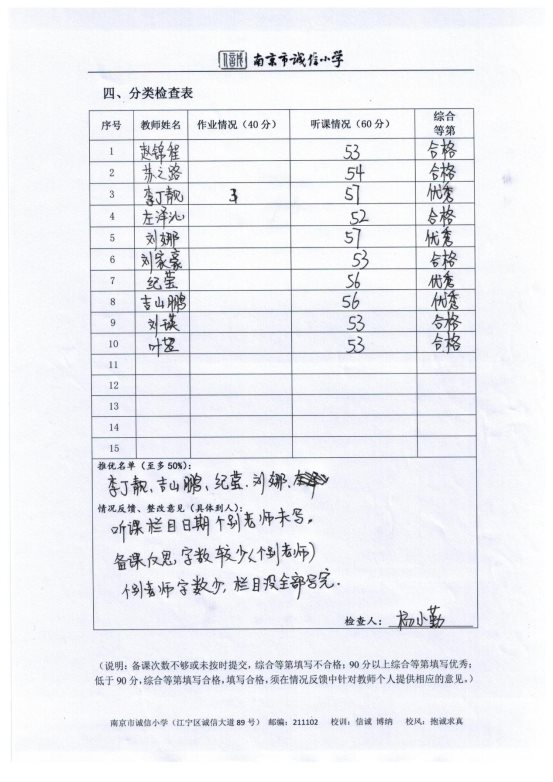 南京市诚信小学
四、分类检查表
序号 教师姓名 作业情况（40 分） 听课情况（60 分） 综合等第
1 赵锦程 53 合格
2 苏之路 54 合格
3 李丁靓 57 优秀
4 左泽沁 52 合格
5 刘娜 57 优秀
6 刘家豪 53 合格
7 纪莹 56 优秀
8 吉山鹏 56 优秀
9 刘瑛 53 合格
10 叶 53 合格
11
12
13
14
15
推优名单（至多 50%）：
李丁靓、吉山鹏、纪莹、刘娜、
情况反馈、整改意见（具体到人）：
听课栏目日期个别老师未写。
备课反思，字数较少（个别老师）
个别老师字数少，栏目没全部写完.
检查人： 杨小勤
（说明：备课次数不够或未按时提交，综合等第填写不合格；90 分以上综合等第填写优秀；
低于 90 分，综合等第填写合格，填写合格，须在情况反馈中针对教师个人提供相应的意见。）
南京市诚信小学（江宁区诚信大道 89 号） 邮编：211102 校训：信诚 博纳 校风：抱诚求真